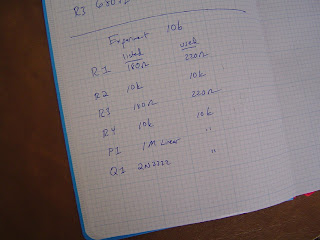 R3 680Ω
Experiment 10b
listed used
R1 180Ω 220Ω
R2 10k 10k
R3 180Ω 220Ω
R4 10k 10k
P1 1M Linear "
Q1 2N2222 "